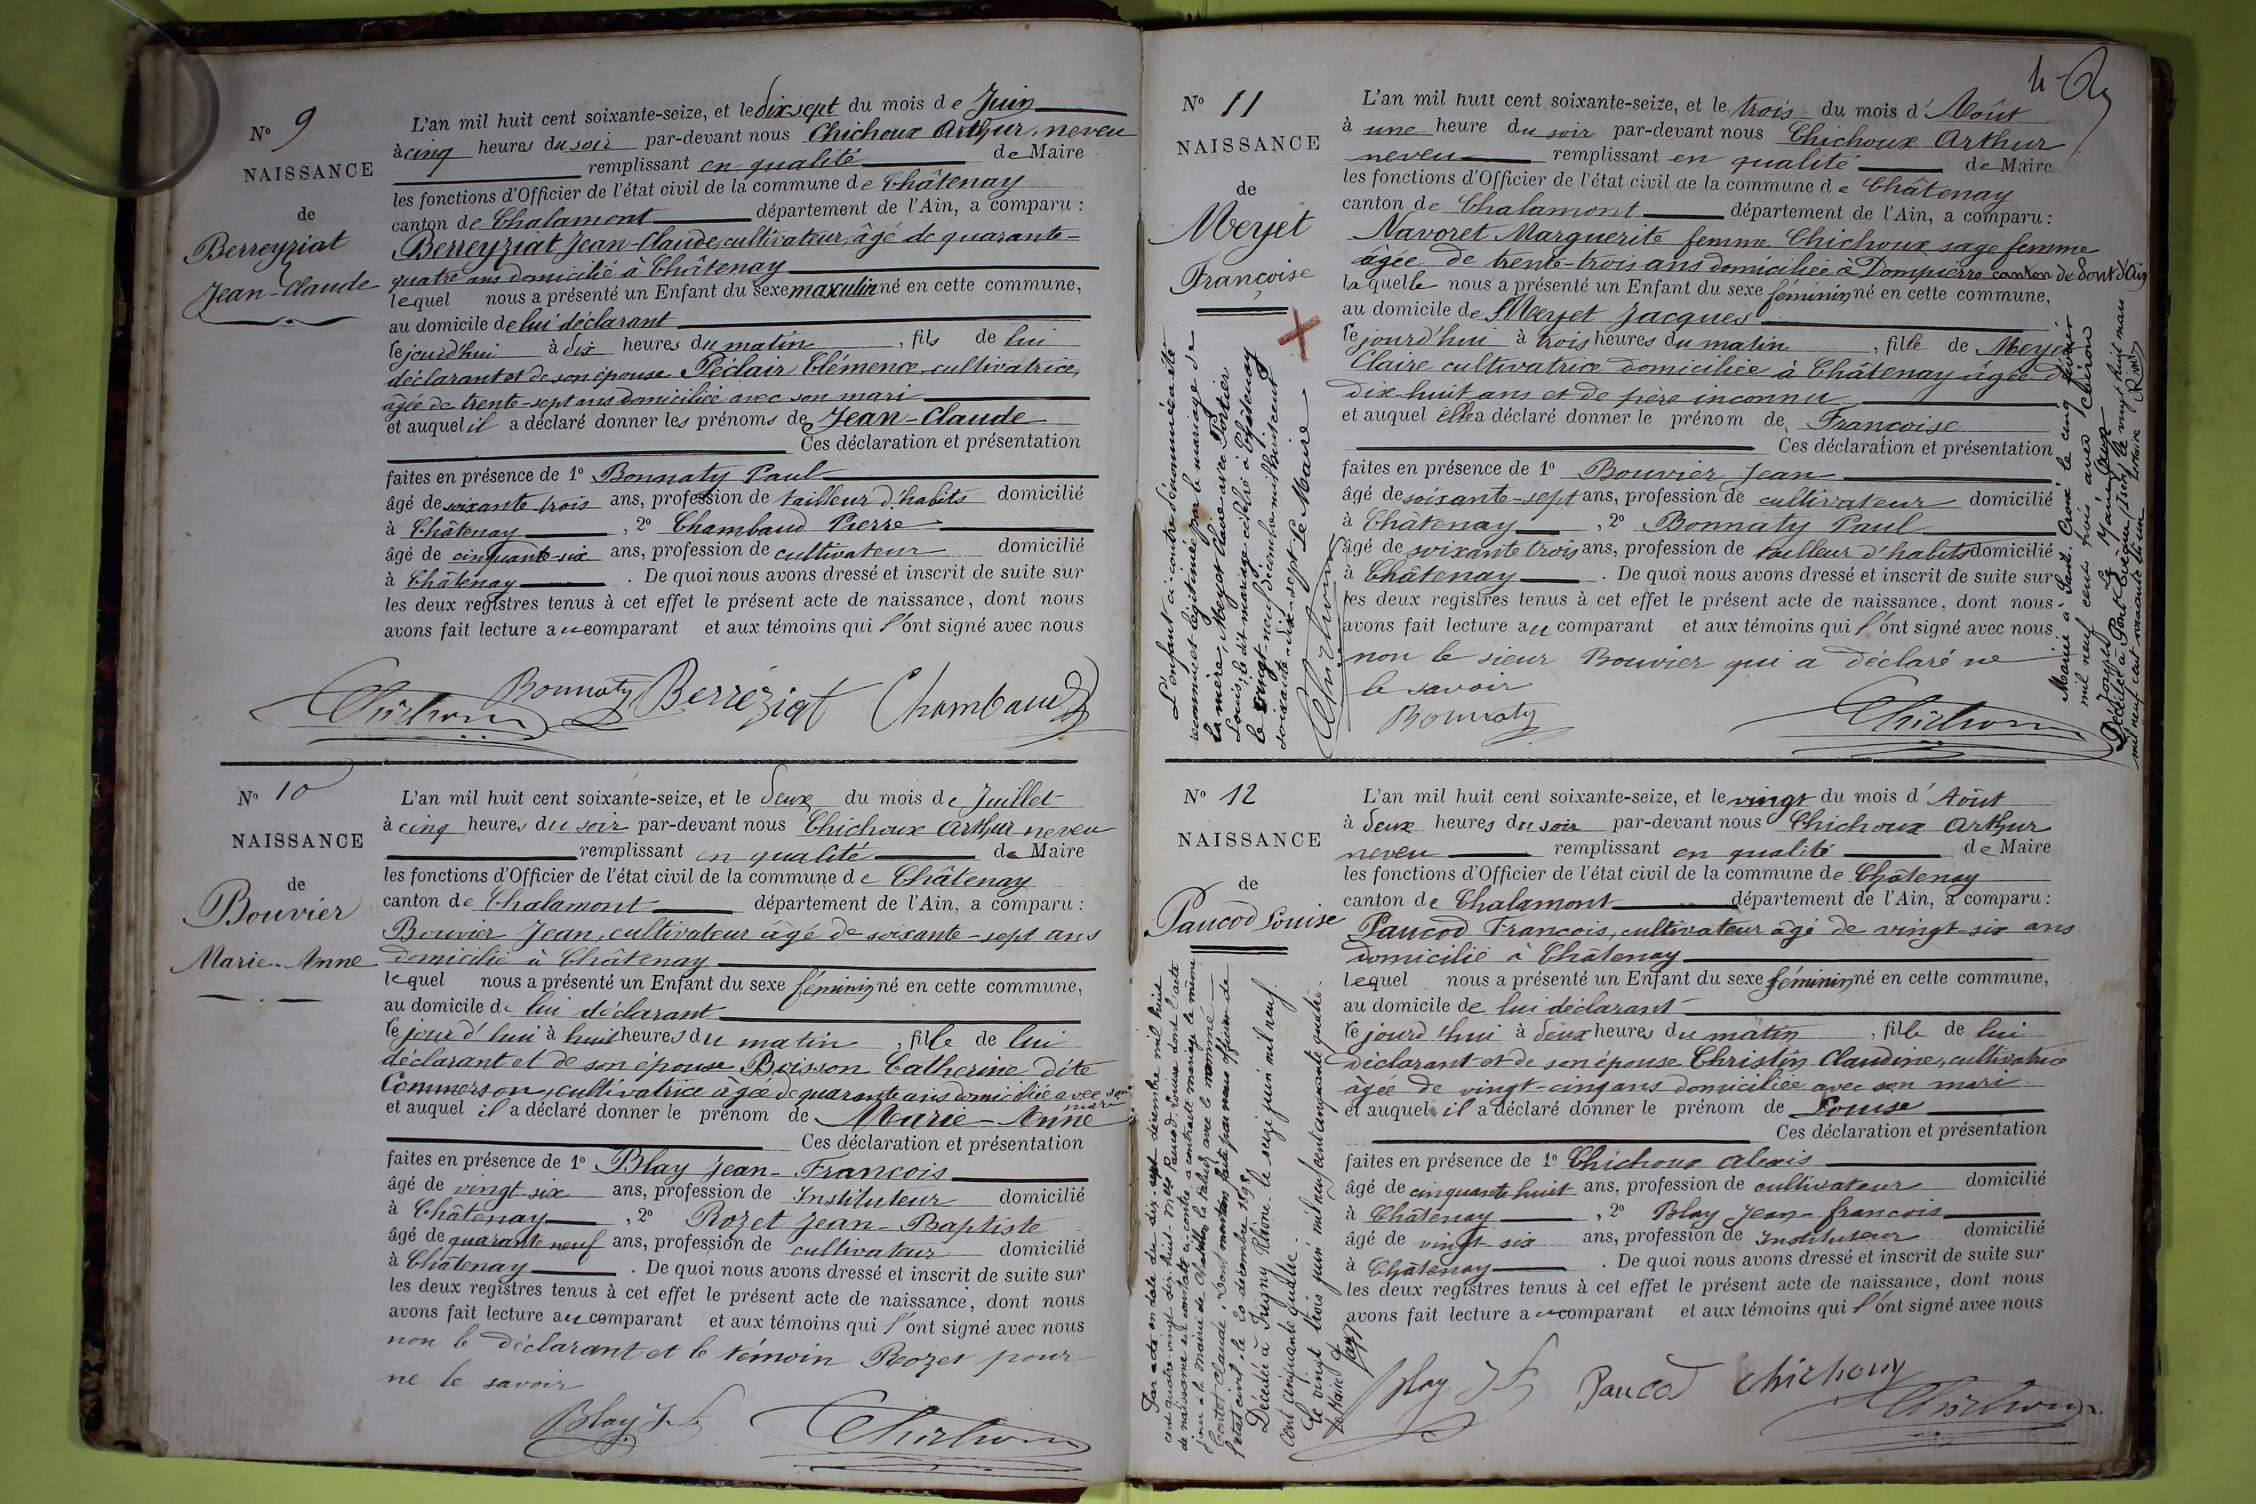 N° 9
NAISSANCE
de
Berreyziat
Jean-Claude
L'an mil huit cent soixante-seize, et le dix sept du mois de Juin
à cinq heures du soir par-devant nous Chichoux Arthur, neveu
remplissant en qualité de Maire
les fonctions d'Officier de l'état civil de la commune de Châtenay
canton de Chalamont département de l'Ain, a comparu :
Berreyziat Jean-Claude, cultivateur, âgé de quarante-
quatre ans domicilié à Châtenay
lequel nous a présenté un Enfant du sexe masculin né en cette commune,
au domicile de lui déclarant
le jourd'hui à dix heures du matin , fils de lui
déclarant et de son épouse Péclair Clémence, cultivatrice,
âgée de trente-sept ans domiciliée avec son mari
et auquel il a déclaré donner les prénoms de Jean-Claude
Ces déclaration et présentation
faites en présence de 1° Bonnaty Paul
âgé de soixante trois ans, profession de tailleur d'habits domicilié
à Châtenay , 2° Chambaud Pierre
âgé de cinquante-six ans, profession de cultivateur domicilié
à Châtenay . De quoi nous avons dressé et inscrit de suite sur
les deux registres tenus à cet effet le présent acte de naissance, dont nous
avons fait lecture au comparant et aux témoins qui l'ont signé avec nous
Bonnaty Berréziat Chambaud
Chichoux
N° 10
NAISSANCE
de
Bouvier
Marie-Anne
L'an mil huit cent soixante-seize, et le deux du mois de Juillet
à cinq heures du soir par-devant nous Chichoux Arthur neveu
remplissant en qualité de Maire
les fonctions d'Officier de l'état civil de la commune de Châtenay
canton de Chalamont département de l'Ain, a comparu :
Bouvier Jean, cultivateur âgé de soixante-sept ans
domicilié à Châtenay
lequel nous a présenté un Enfant du sexe féminin né en cette commune,
au domicile de lui déclarant
le jourd'hui à huit heures du matin , fille de lui
déclarant et de son épouse Boisson Catherine dite
Commerson, cultivatrice âgée de quarante ans domiciliée avec son
mari
et auquel il a déclaré donner le prénom de Marie-Anne
Ces déclaration et présentation
faites en présence de 1° Blay Jean-François
âgé de vingt-six ans, profession de Instituteur domicilié
à Châtenay , 2° Rozet Jean-Baptiste
âgé de quarante neuf ans, profession de cultivateur domicilié
à Châtenay . De quoi nous avons dressé et inscrit de suite sur
les deux registres tenus à cet effet le présent acte de naissance, dont nous
avons fait lecture au comparant et aux témoins qui l'ont signé avec nous
non le déclarant et le témoin Rozet pour
ne le savoir
Blay J. F. Chichoux
4
N° 11
NAISSANCE
de
Meyet
Françoise
L'enfant ci-contre dénommée a été
reconnue et légitimée par le mariage de
la mère, Meyet Claire avec Portier
Louis, le dit mariage célébré à Châtenay
le vingt-neuf décembre mil huit cent
soixante-dix-sept Le Maire
Chichoux
L'an mil huit cent soixante-seize, et le trois du mois d'Août
à une heure du soir par-devant nous Chichoux Arthur
neveu remplissant en qualité de Maire
les fonctions d'Officier de l'état civil de la commune de Châtenay
canton de Chalamont département de l'Ain, a comparu :
Navoret Marguerite femme Chichoux sage femme
âgée de trente-trois ans domiciliée à Dompierre canton de Pont d'Ain
laquelle nous a présenté un Enfant du sexe féminin né en cette commune,
au domicile de Meyet Jacques
le jourd'hui à trois heures du matin , fille de Meyet
Claire cultivatrice domiciliée à Châtenay âgée de
dix-huit ans et de père inconnu
et auquel elle a déclaré donner le prénom de Françoise
Ces déclaration et présentation
faites en présence de 1° Bouvier Jean
âgé de soixante-sept ans, profession de cultivateur domicilié
à Châtenay , 2° Bonnaty Paul
âgé de soixante trois ans, profession de tailleur d'habits domicilié
à Châtenay . De quoi nous avons dressé et inscrit de suite sur
les deux registres tenus à cet effet le présent acte de naissance, dont nous
avons fait lecture au comparant et aux témoins qui l'ont signé avec nous
non le sieur Bouvier qui a déclaré ne
le savoir
Bonnaty Chichoux
Mariée à Cronx le cinq février
mil neuf cent trois avec
Joseph
Décédée à Pont Evêque (Isère) le vingt huit mars
mil neuf cent soixante et un
N° 12
NAISSANCE
de
Paucod Louise
Par acte en date du dix-sept décembre mil huit
cent quatre-vingt dix-huit Mlle Paucod Louise dont l'acte
de naissance est constaté ci-contre a contracté mariage le même
jour à la Mairie de Châtillon la Palud avec le nommé
Contet Claude, dont mention faite par nous officier de
l'état civil, le 20 décembre 1898.
Décédée à Irigny Rhône le seize juin mil neuf
cent cinquante quatre.
Le vingt trois juin mil neuf cent cinquante quatre.
Le Maire
L'an mil huit cent soixante-seize, et le vingt du mois d'Août
à deux heures du soir par-devant nous Chichoux Arthur
neveu remplissant en qualité de Maire
les fonctions d'Officier de l'état civil de la commune de Châtenay
canton de Chalamont département de l'Ain, a comparu :
Paucod François, cultivateur âgé de vingt-six ans
domicilié à Châtenay
lequel nous a présenté un Enfant du sexe féminin né en cette commune,
au domicile de lui déclarant
le jourd'hui à deux heures du matin , fille de lui
déclarant et de son épouse Christin Claudine, cultivatrice
âgée de vingt-cinq ans domiciliée avec son mari
et auquel il a déclaré donner le prénom de Louise
Ces déclaration et présentation
faites en présence de 1° Chichoux Alexis
âgé de cinquante huit ans, profession de cultivateur domicilié
à Châtenay , 2° Blay Jean-François
âgé de vingt six ans, profession de Instituteur domicilié
à Châtenay . De quoi nous avons dressé et inscrit de suite sur
les deux registres tenus à cet effet le présent acte de naissance, dont nous
avons fait lecture au comparant et aux témoins qui l'ont signé avec nous
Blay J F Paucod Chichoux
Chichoux